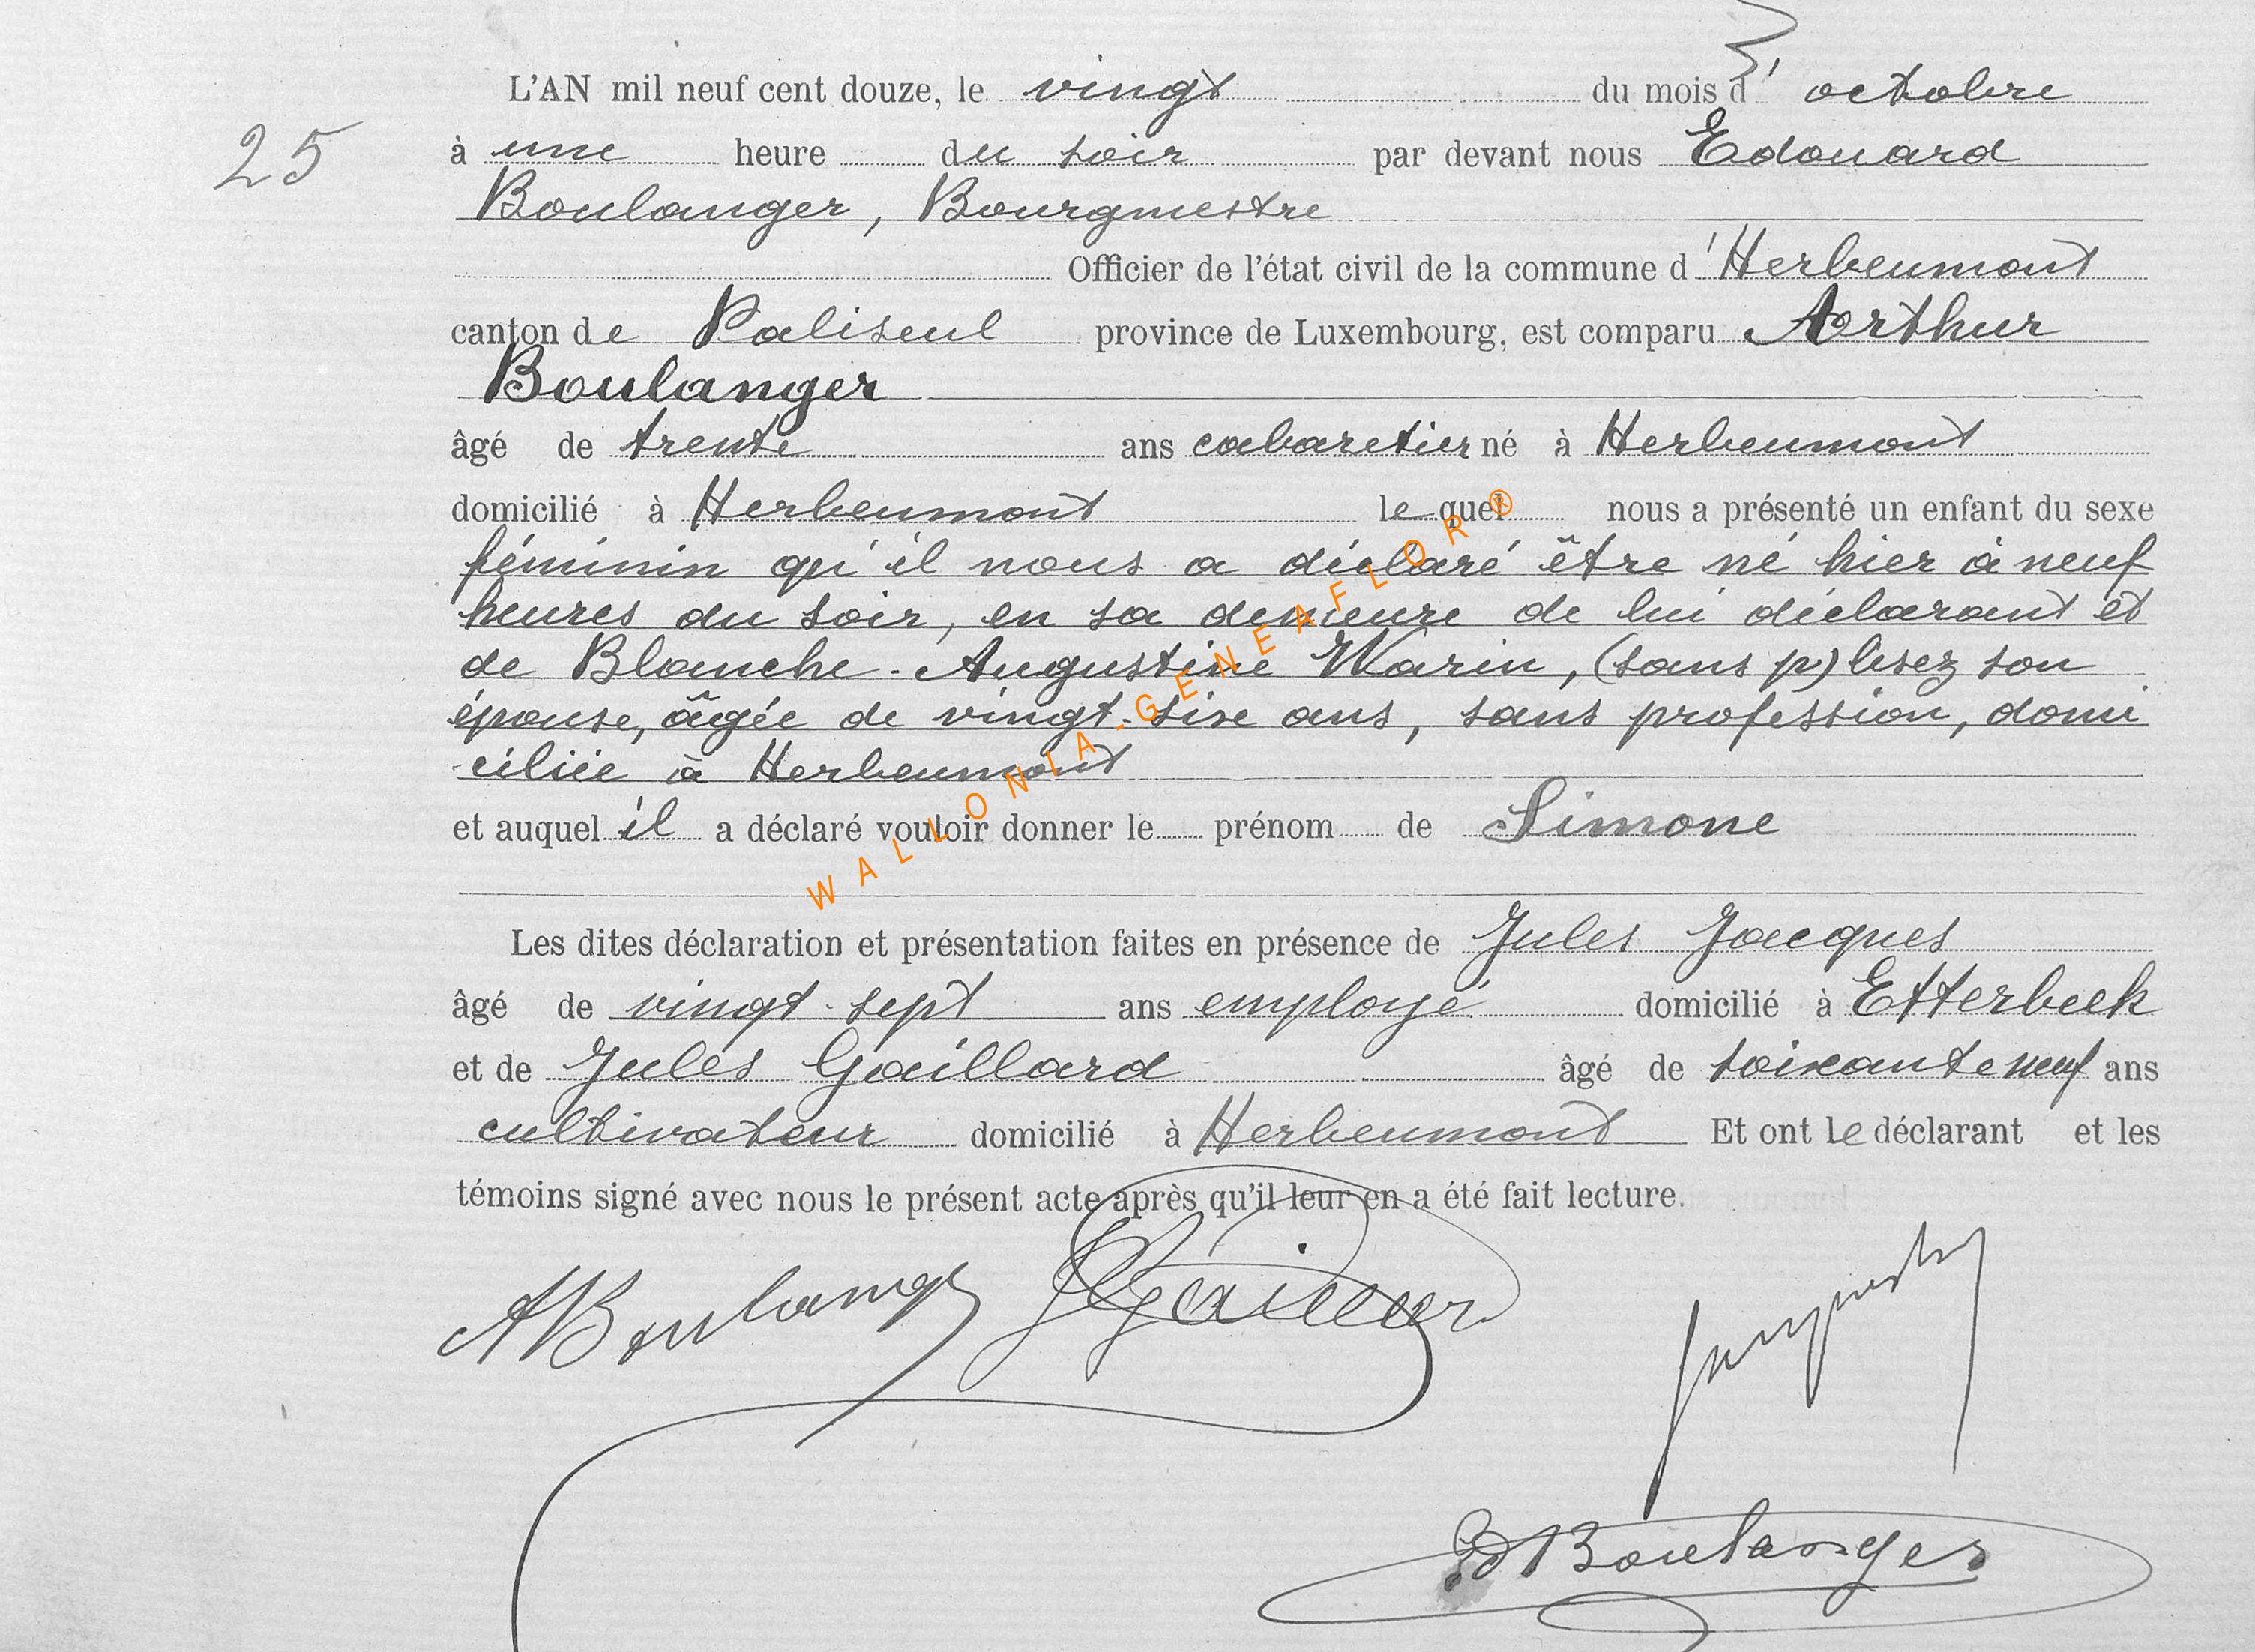 L'AN mil neuf cent douze, le vingt du mois d' octobre
25
à une heure du soir par devant nous Edouard
Boulanger, Bourgmestre
Officier de l'état civil de la commune d'Herbeumont
canton de Paliseul province de Luxembourg, est comparu Arthur
Boulanger
âgé de trente ans cabaretier né à Herbeumont
domicilié à Herbeumont le quel nous a présenté un enfant du sexe
féminin qu'il nous a déclaré être né hier à neuf
heures du soir, en sa demeure de lui déclarant et
de Blanche-Augustine Warin, (sans p) lisez son
épouse, âgée de vingt-six ans, sans profession, domi
ciliée à Herbeumont
et auquel il a déclaré vouloir donner le prénom de Simone
Les dites déclaration et présentation faites en présence de Jules Jacques
âgé de vingt-sept ans employé domicilié à Etterbeek
et de Jules Gaillard âgé de soixante neuf ans
cultivateur domicilié à Herbeumont Et ont le déclarant et les
témoins signé avec nous le présent acte après qu'il leur en a été fait lecture.
ABoulanger
Ed Boulanger
WALLONIA-GENEAFLOR®